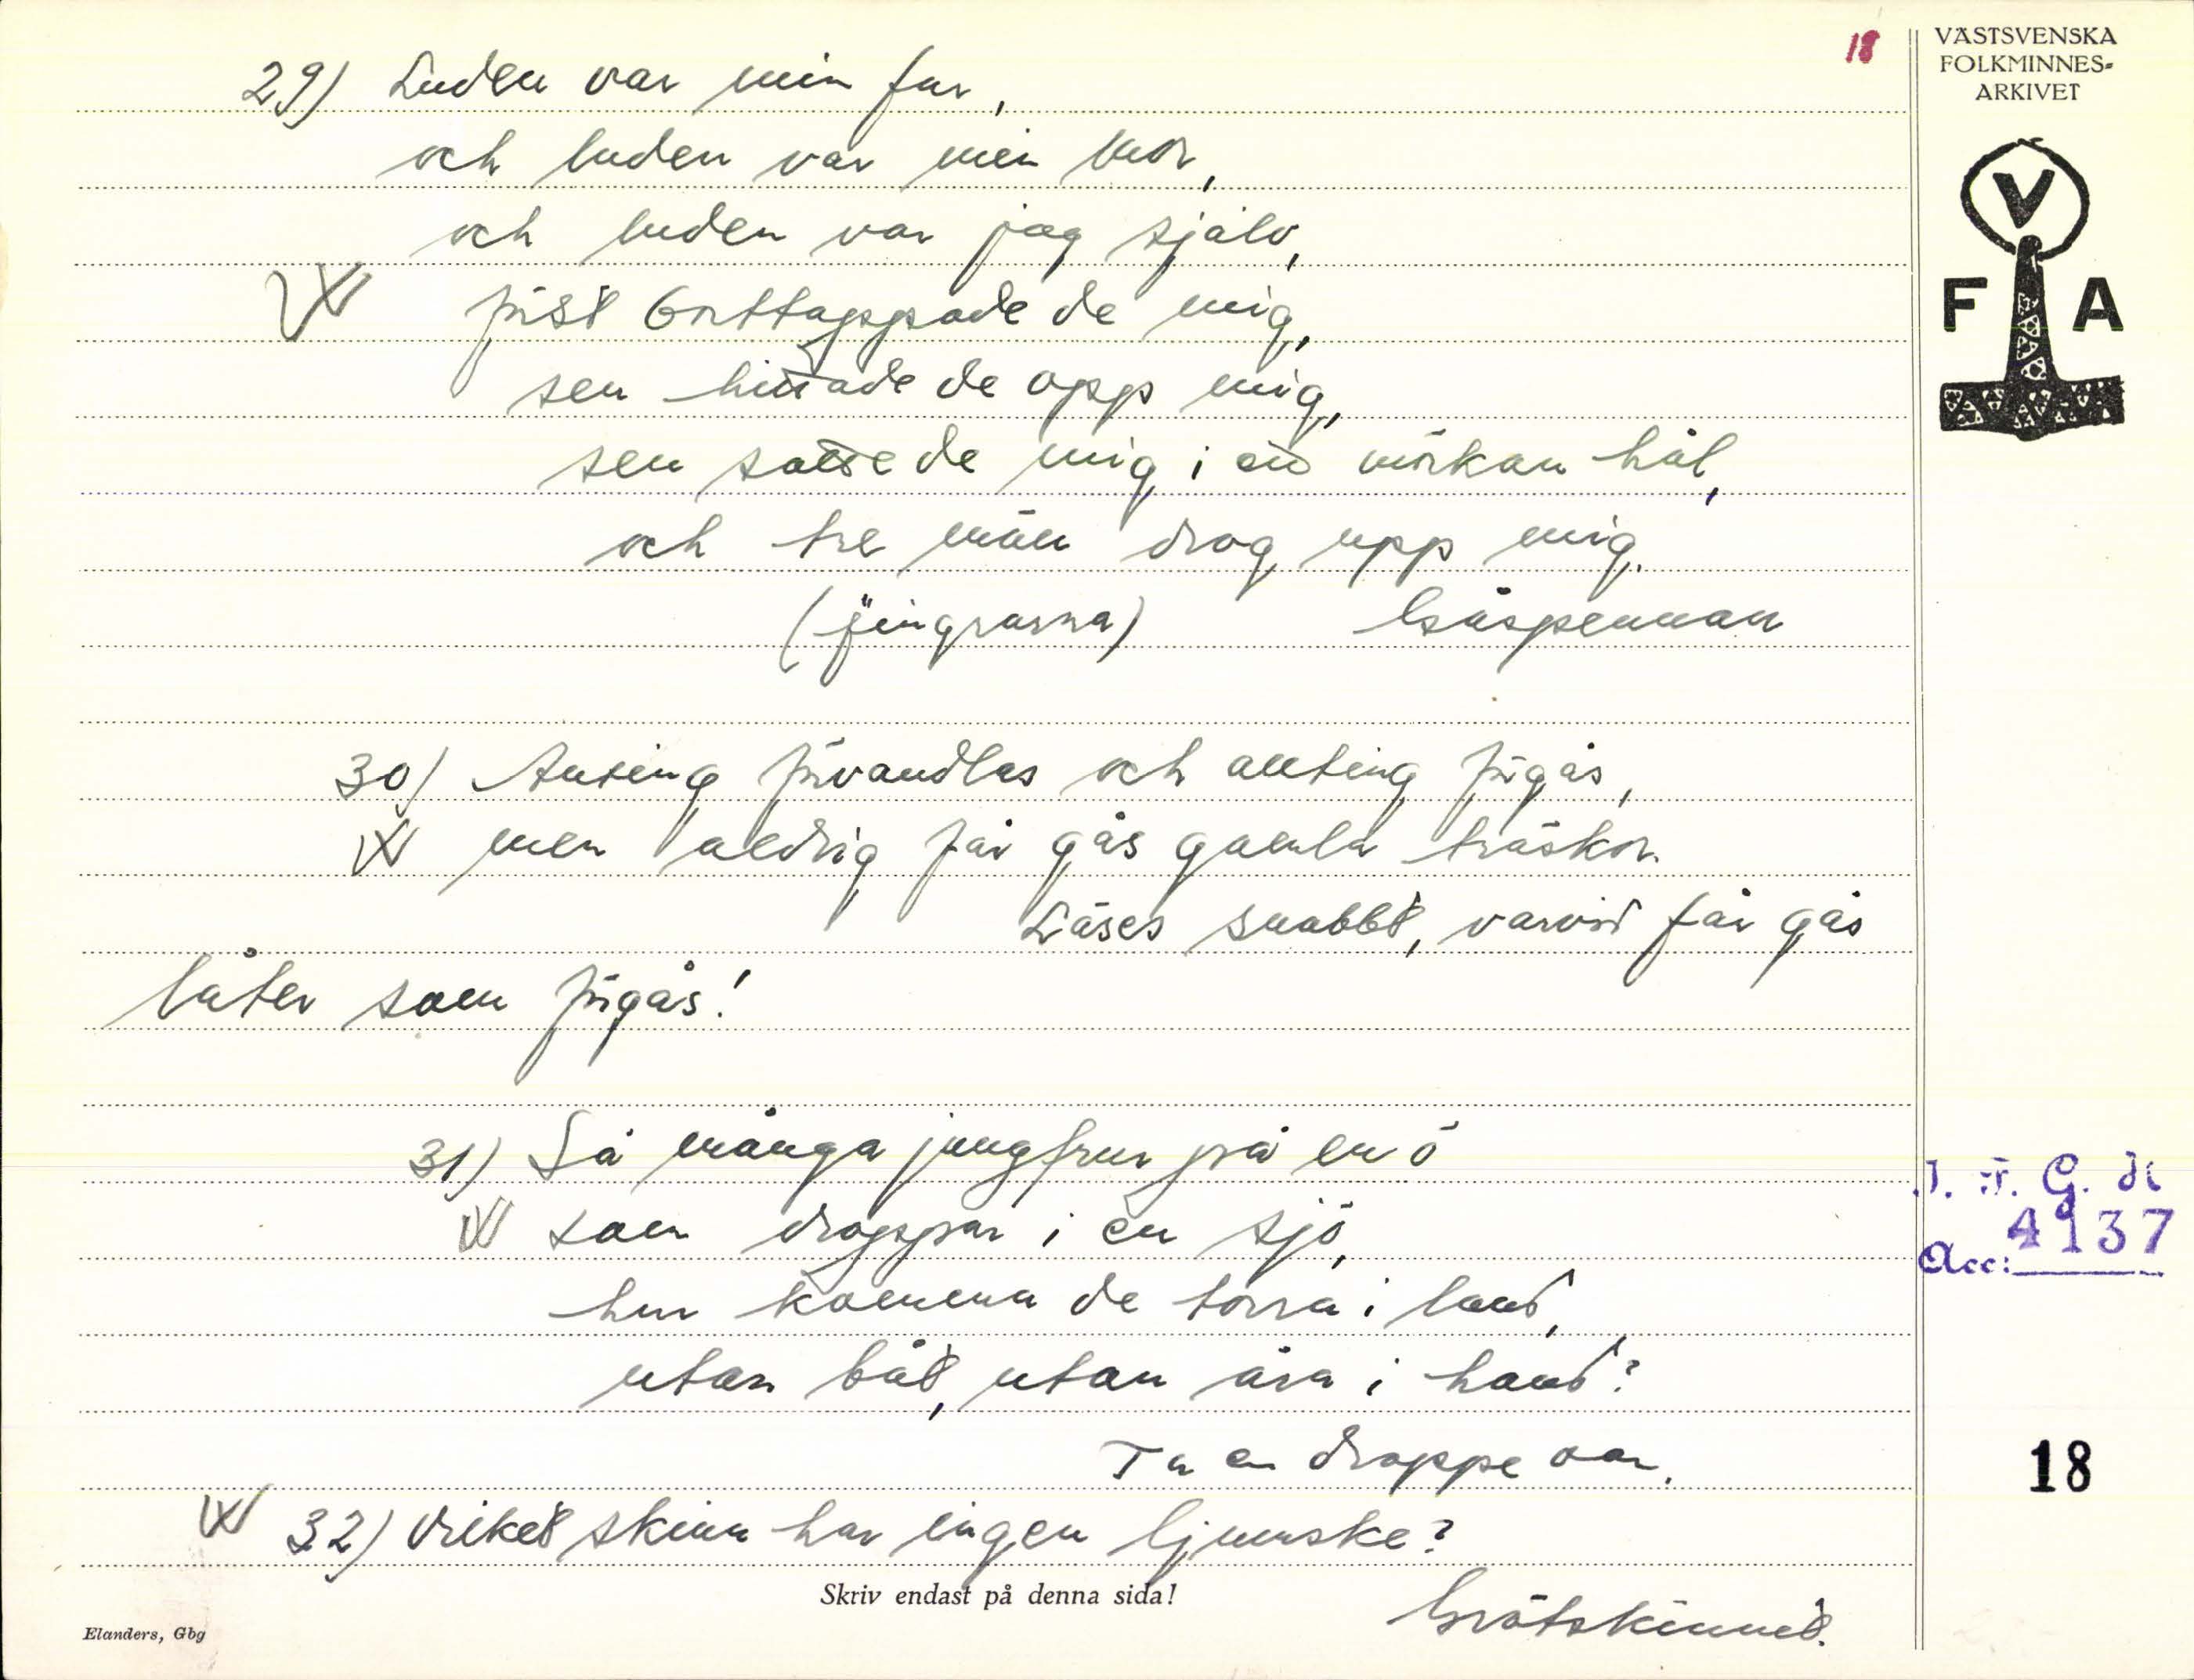 18
VÄSTSVENSKA
FOLKMINNES-
ARKIVET
V
F A
29) Luden var min far,
och luden var min mor,
och luden var jag själv,
först borttappade de mig,
sen hittade de opp mig,
sen satte de mig i ett mörkan hål,
och tre män drog upp mig.
(fingrarna) Gåspennan
30) Anting förvandlas och allting förgås,
men aldrig får gås gamla träskor.
Läses snabbt, varvid får gås
låter som förgås!
31) Så många jungfrur på en ö
som droppar i en sjö,
hur komma de torra i land,
utan båt, utan åra i hand?
Ta en droppe var.
32) Vilket skinn har ingen ljumske?
Grötskinnet.
I. F. G. H
4137
Acc:
18
Skriv endast på denna sida!
Elanders, Gbg